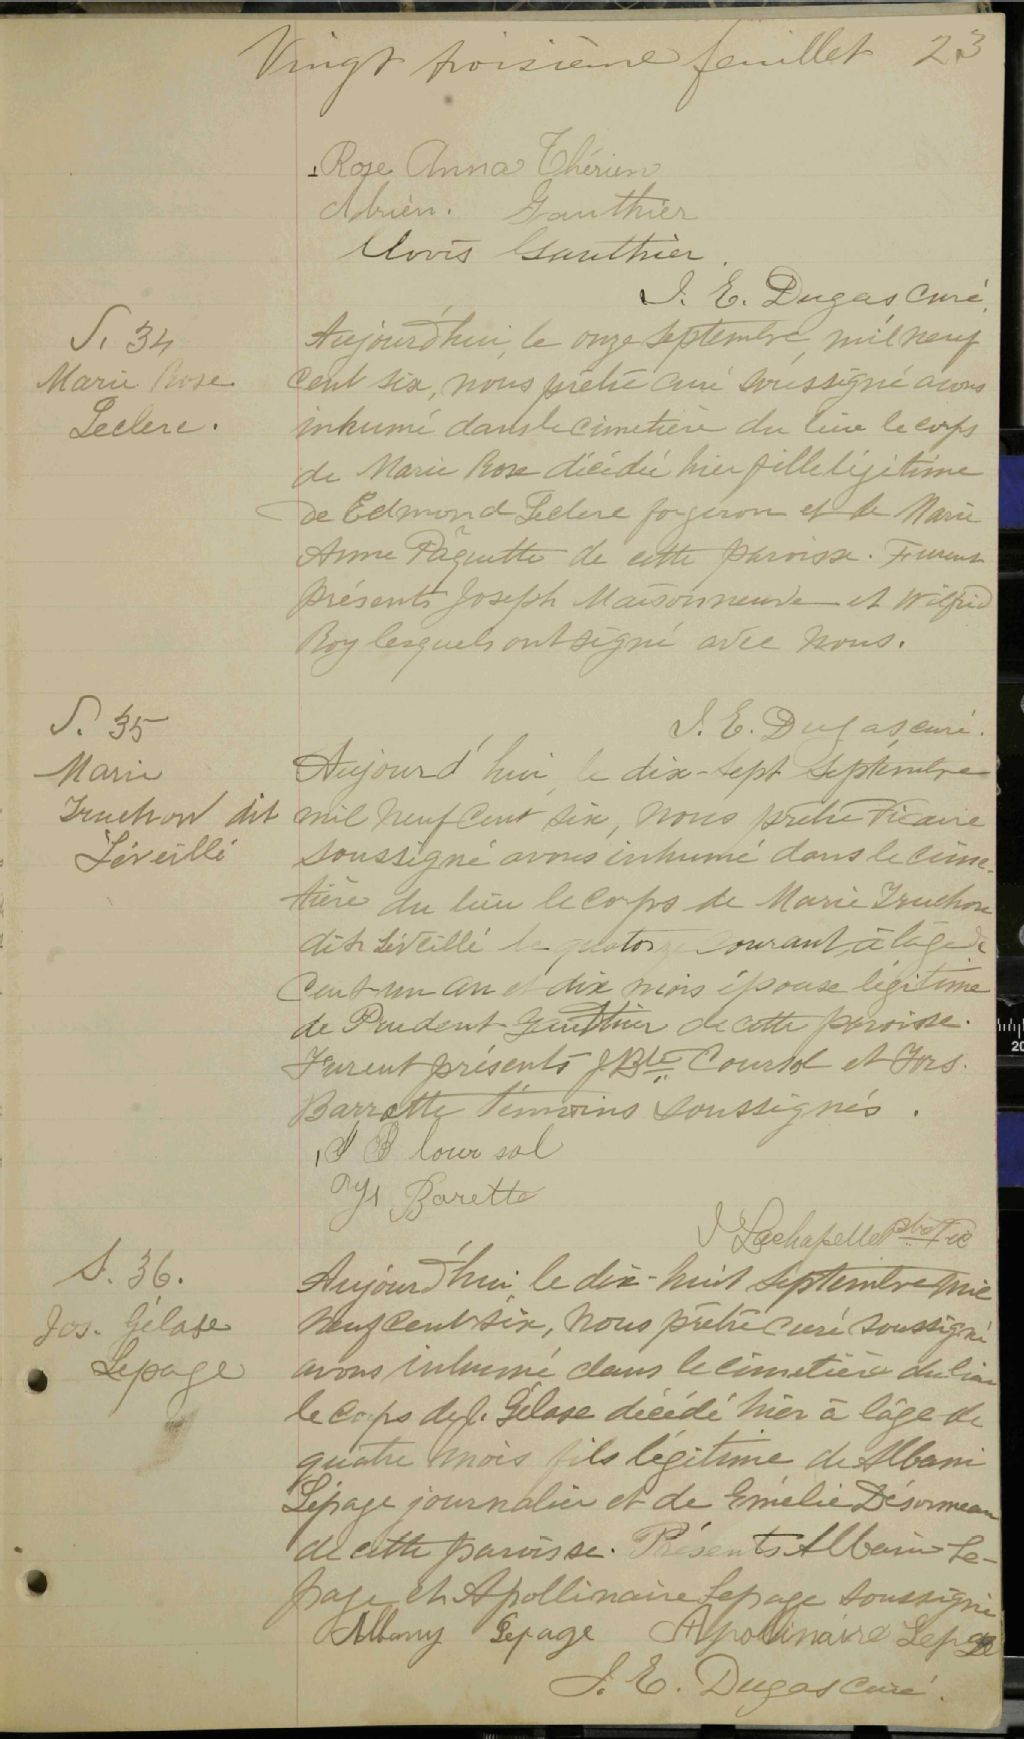 Vingt troisième feuillet 23
Rose Anna Thérien
Adrien. Gauthier
Clovis Gauthier.
J. E. Dugas curé.
S. 34
Marie Rose
Leclerc.
Aujourd'hui, le onze septembre, mil neuf
cent six, nous prêtre curé soussigné avons
inhumé dans le cimetière du lieu le corps
de Marie Rose décédée hier fille légitime
de Edmond Leclerc forgeron et de Marie
Anne Pâquette de cette paroisse. Furent
présents Joseph Maisonneuve et Wilfrid
Roy lesquels ont signé avec nous.
J. E. Dugas curé.
S. 35
Marie
Truchon dit
Léveillé
Aujourd'hui, le dix-sept septembre
mil neuf cent six, nous prêtre vicaire
soussigné avons inhumé dans le cime-
tière du lieu le corps de Marie Truchon
dit Léveillé le quatorze courant, à l'âge de
cent-un an et dix mois épouse légitime
de Prudent Gauthier de cette paroisse.
Furent présents J Bte Coursol et Frs.
Barrette témoins soussignés.
J B Coursol
Frs Barette
J Lachapelle Ptre Vic
S. 36.
Jos. Gélase
Lepage
Aujourd'hui, le dix-huit septembre mil
neuf cent six, nous prêtre curé soussigné
avons inhumé dans le cimetière du lieu
le corps de J. Gélase décédé hier à l'âge de
quatre mois fils légitime de Albani
Lépage journalier et de Emélie Désormeau
de cette paroisse. Présents Albani Le-
page et Apollinaire Lepage soussignés
Albany Lepage Apolinaire Lepage
J. E. Dugas curé.